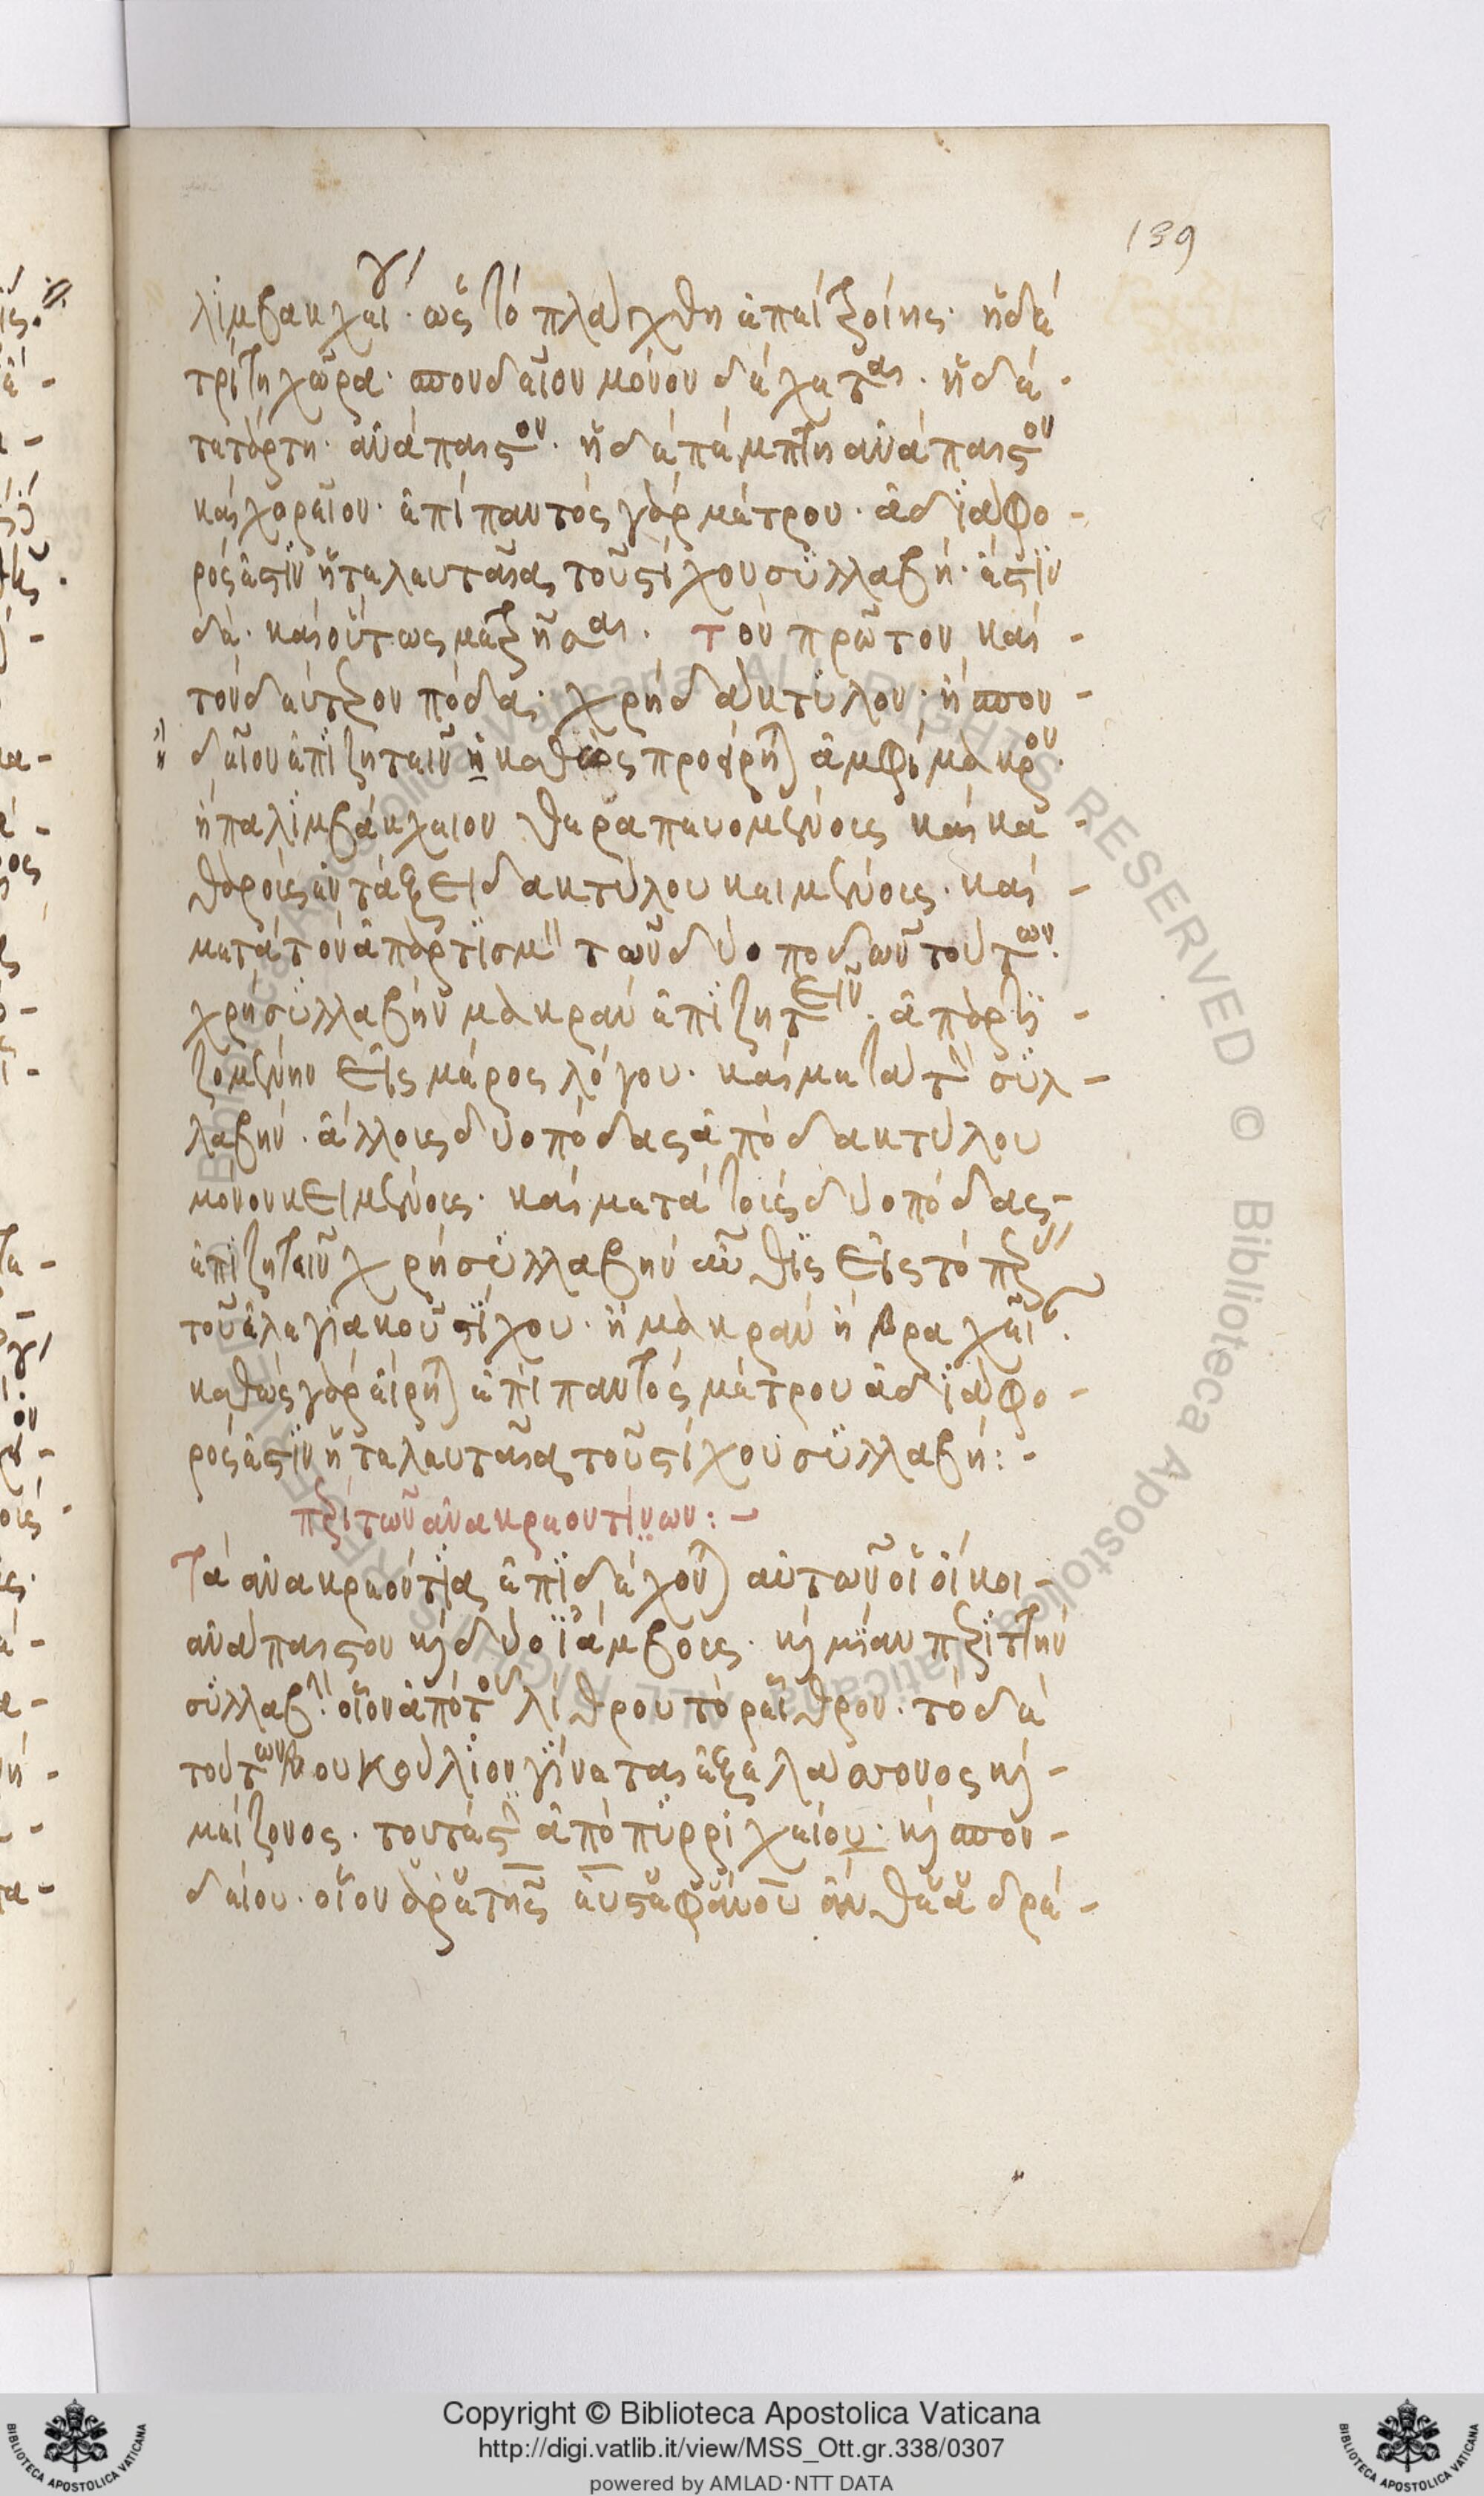 139
γ΄
λιμβακχει· ὡς τὸ πλάγχθη ἐπεὶ ξοίης· ἡ δὲ
τρίτη χῶρα· σπονδεῖον μόνον δέχεται· ἡ δὲ -
τετάρτη· ἀνάπαιστον· ἡ δὲ πέμπτη ἀνάπαιστον
καὶ χορεῖον· ἐπὶ παντὸς γὰρ μέτρου· ἀδιάφο -
ρός ἐστιν ἡ τελευταῖα τοῦ στίχου συλλαβή· ἔστιν
δὲ· καὶ οὕτως μετρῆσαι· τὸν πρῶτον καὶ -
τὸν δεύτερον πόδα· χρὴ δάκτυλον· ἢ σπον -
δεῖον ἐπιζητεῖν ἢ καθὼς προείρηται ἀμφίμακρον·
ἢ παλιμβάκχειον θεραπευομένους καὶ κα -
θαροὺς ἐν τάξει δακτύλου κειμένους· καὶ -
μετὰ τὸν ἀπαρτισμὸν τῶν δύο ποδῶν τούτων·
χρὴ συλλαβὴν μακρὰν ἐπιζητεῖν· ἀπαρτι -
ζομένην εἰς μέρος λόγου· καὶ μετὰ τὴν συλ -
λαβὴν· ἄλλους δύο πόδας ἀπὸ δακτύλου
μόνον κειμένους· καὶ μετὰ τοὺς δύο πόδας -
ἐπιζητεῖν χρὴ συλλαβὴν αὖθις εἰς τὸ
τοῦ ἐλεγιακοῦ στίχου· ἢ μακρὰν ἢ βραχεῖαν·
καθὼς γὰρ εἴρηται ἐπὶ παντὸς μέτρου ἀδιάφο -
ρός ἐστιν ἡ τελευταῖα τοῦ στίχου συλλαβή: -
περὶ τῶν ἀνακρεοντίνων: -
Τὰ ἀνακρεόντια ἐπιδέχονται αὐτῶν οἱ οἶκοι -
ἀνάπαιστον καὶ δύο ἰάμβους· καὶ μίαν περιττὴν
συλλαβὴν· οἷον ἀπὸ τοῦ λίθρου τὸ ῥεῖθρον· τὸ δὲ
τούτων κουκούλιον γίνεται ἐξ ἐλάσσονος καὶ -
μείζονος· τουτέστιν ἀπὸ πυρριχείου· καὶ σπον -
δείου· οἷον ἀρετῆς εὐστεφάνου ἄνθεα δρέ -
Copyright © Biblioteca Apostolica Vaticana
http://digi.vatlib.it/view/MSS_Ott.gr.338/0307
powered by AMLAD·NTT DATA